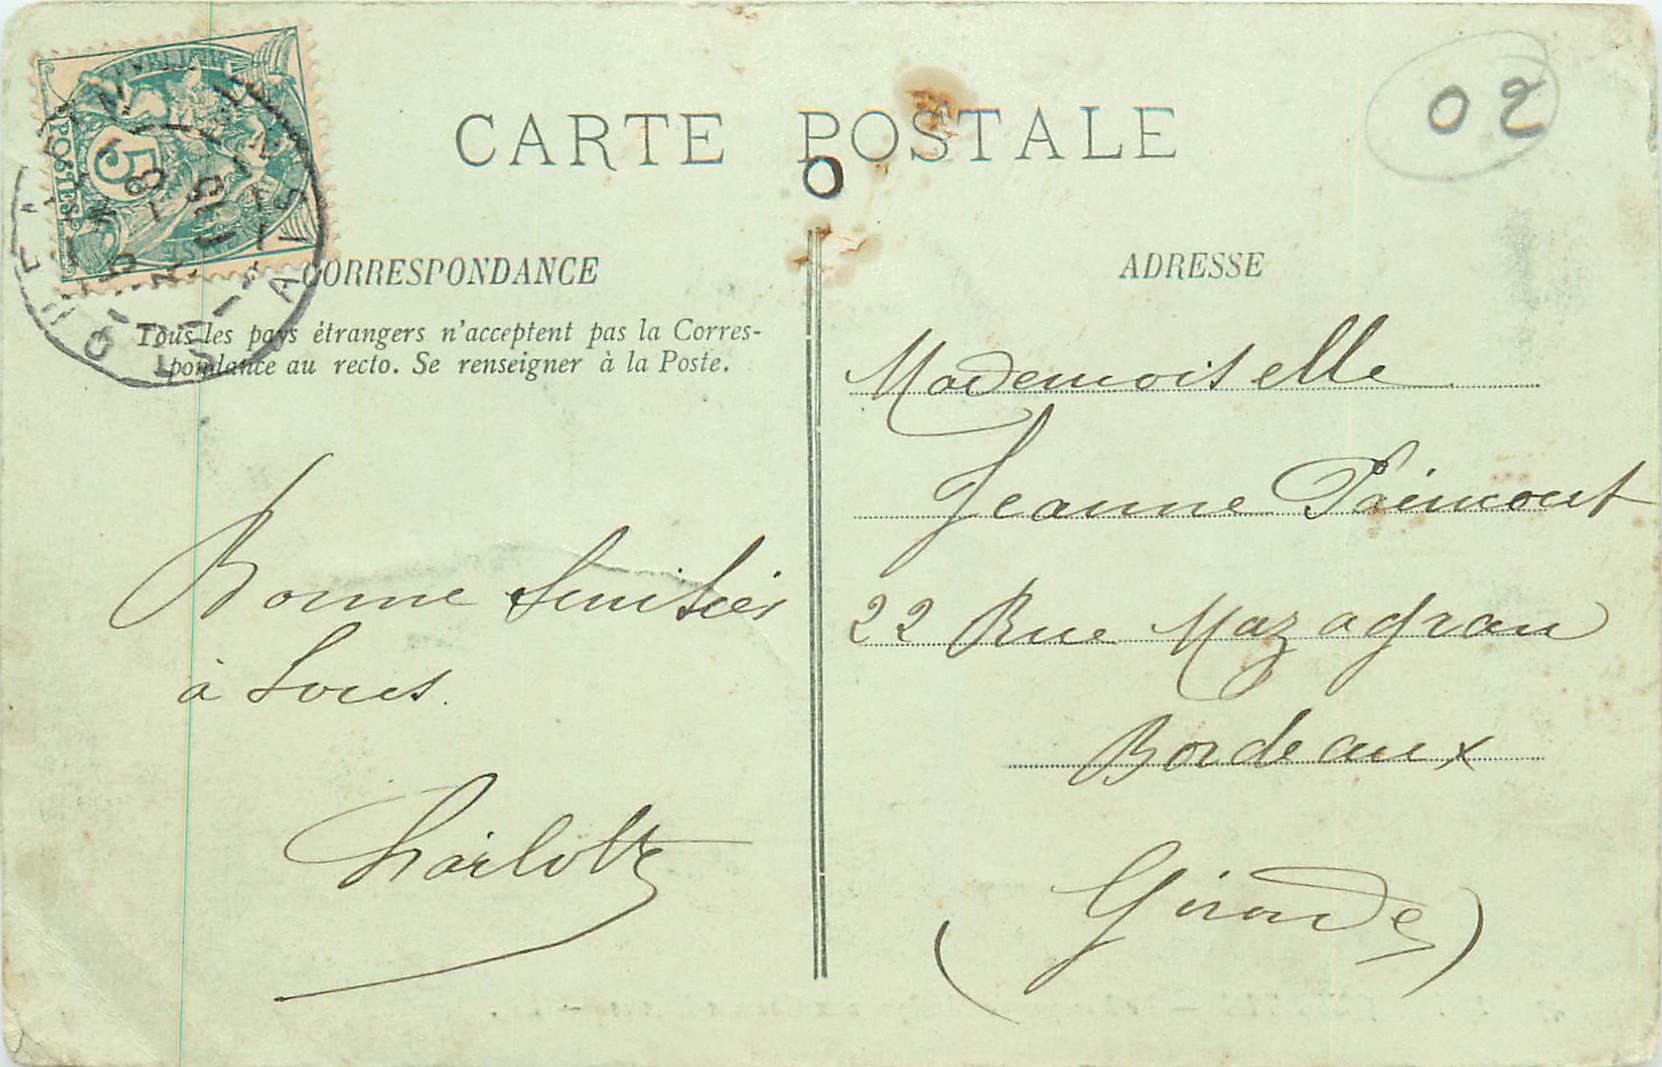 CARTE POSTALE
02
POSTES
5
CORRESPONDANCE
Tous les pays étrangers n'acceptent pas la Corres-
pondance au recto. Se renseigner à la Poste.
Bonne Amitiés
à tous.
Charlotte
ADRESSE
Mademoiselle
Jeanne
22 Rue Mazagran
Bordeaux
(Gironde)